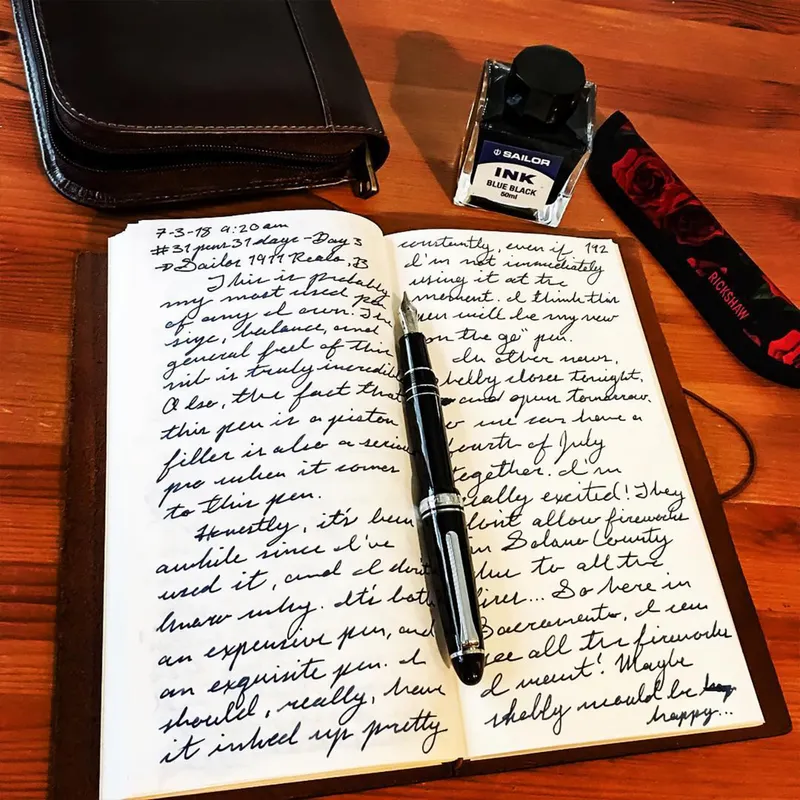 SAILOR
INK
BLUE BLACK
50ml
RICKSHAW
7-3-18 9:20am
#31pens31days-Day 3
Sailor 1911 Realo, B
This is probably
my most used pen
of any I own. The
size, balance, and
general feel of this
nib is truly incredible
Also, the fact that
this pen is a piston
filler is also a serious
pro when it comes
to this pen.
Honestly, it's been
awhile since I've
used it, and I don't
know why. It's both
an expensive pen, and
an exquisite pen. I
should, really, have
it inked up pretty
142
constantly, even if
I'm not immediately
using it at the
moment. I think this
pen will be my new
"on the go" pen.
In other news,
closes tonight,
and open tomorrow
so we can have a
Fourth of July
together. I'm
really excited! They
don't allow fireworks
in Solano County
due to all the
fires... So here in
Sacramento, I can
see all the fireworks
I want! Maybe
would be
happy...